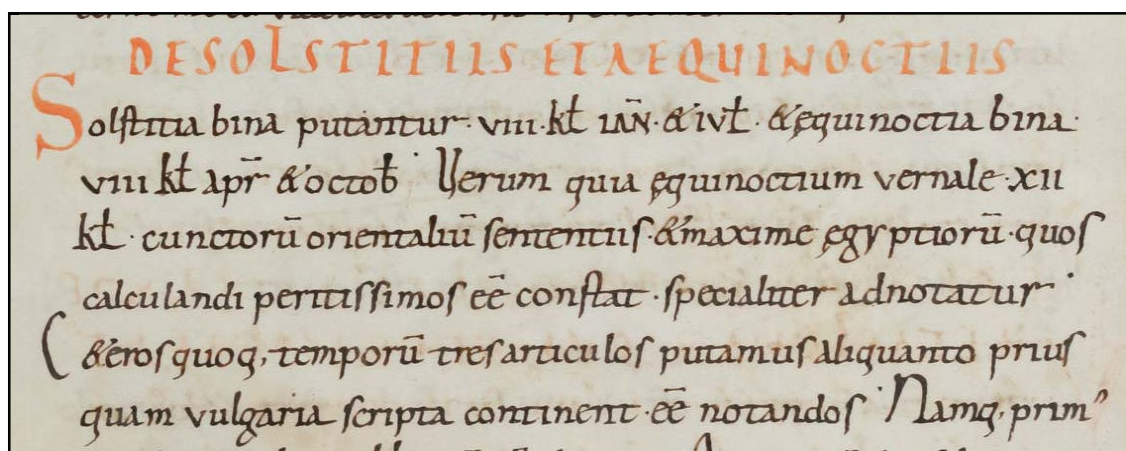 DE SOLSTITIIS ET AEQUINOCTIIS
Solstitia bina putantur · viii · kł iān̄ · & iuł · & ęquinoctia bina ·
viii kł apr̄ & octob̄ · Uerum quia ęquinoctium vernale · xii
kł · cunctorū orientaliū sententiis · & maxime ęgyptiorū · quos
calculandi peritissimos eē constat · specialiter adnotatur ·
C&eros quoq, temporū tres articulos putamus aliquanto prius
quam vulgaria scripta continent · eē notandos · Namq, prim᾿